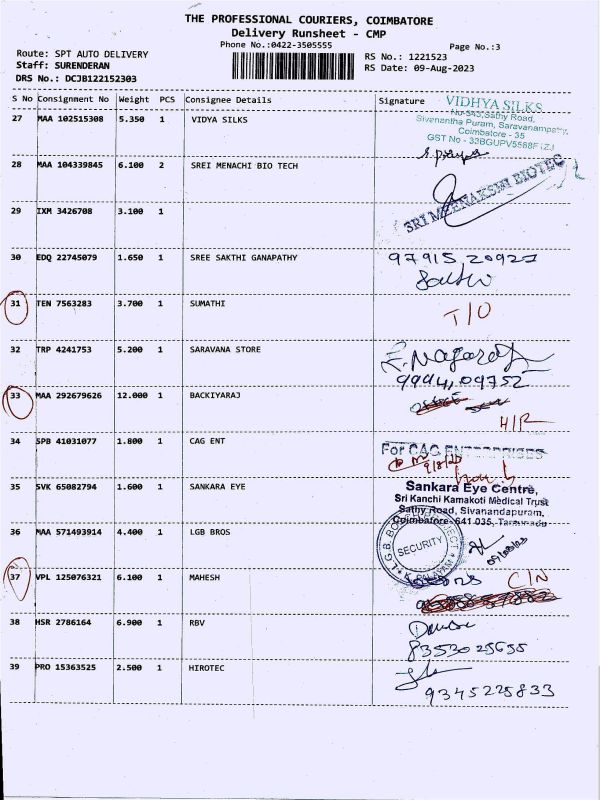 THE PROFESSIONAL COURIERS, COIMBATORE
Delivery Runsheet - CMP
Phone No.:0422-3505555
Page No.:3
Route: SPT AUTO DELIVERY
RS No.: 1221523
Staff: SURENDERAN
RS Date: 09-Aug-2023
DRS No.: DCJB122152303
S No Consignment No Weight PCS Consignee Details Signature
VIDHYA SILKS
No-543, Sathy Road,
Sivanantha Puram, Saravanampatty,
Coimbatore - 35
27 MAA 102515308 5.350 1 VIDYA SILKS
28 MAA 104339845 6.100 2 SREI MENACHI BIO TECH
SRI MEENAKSHI BIOTEC
29 IXM 3426708 3.100 1
30 EDQ 22745079 1.650 1 SREE SAKTHI GANAPATHY
97915 20927
31 TEN 7563283 3.700 1 SUMATHI
T/O
32 TRP 4241753 5.200 1 SARAVANA STORE
9994,09752
33 MAA 292679626 12.000 1 BACKIYARAJ
H/R
34 SPB 41031077 1.800 1 CAG ENT
For CAG ENTERPRISES
35 SVK 65082794 1.600 1 SANKARA EYE
Sankara Eye Centre,
Sri Kanchi Kamakoti Medical Trust
Sathy Road, Sivanandapuram,
Coimbatore-641 035,
36 MAA 571493914 4.400 1 LGB BROS
SECURITY
37 VPL 125076321 6.100 1 MAHESH
C/N
38 HSR 2786164 6.900 1 RBV
8353025655
39 PRO 15363525 2.500 1 HIROTEC
9345225833